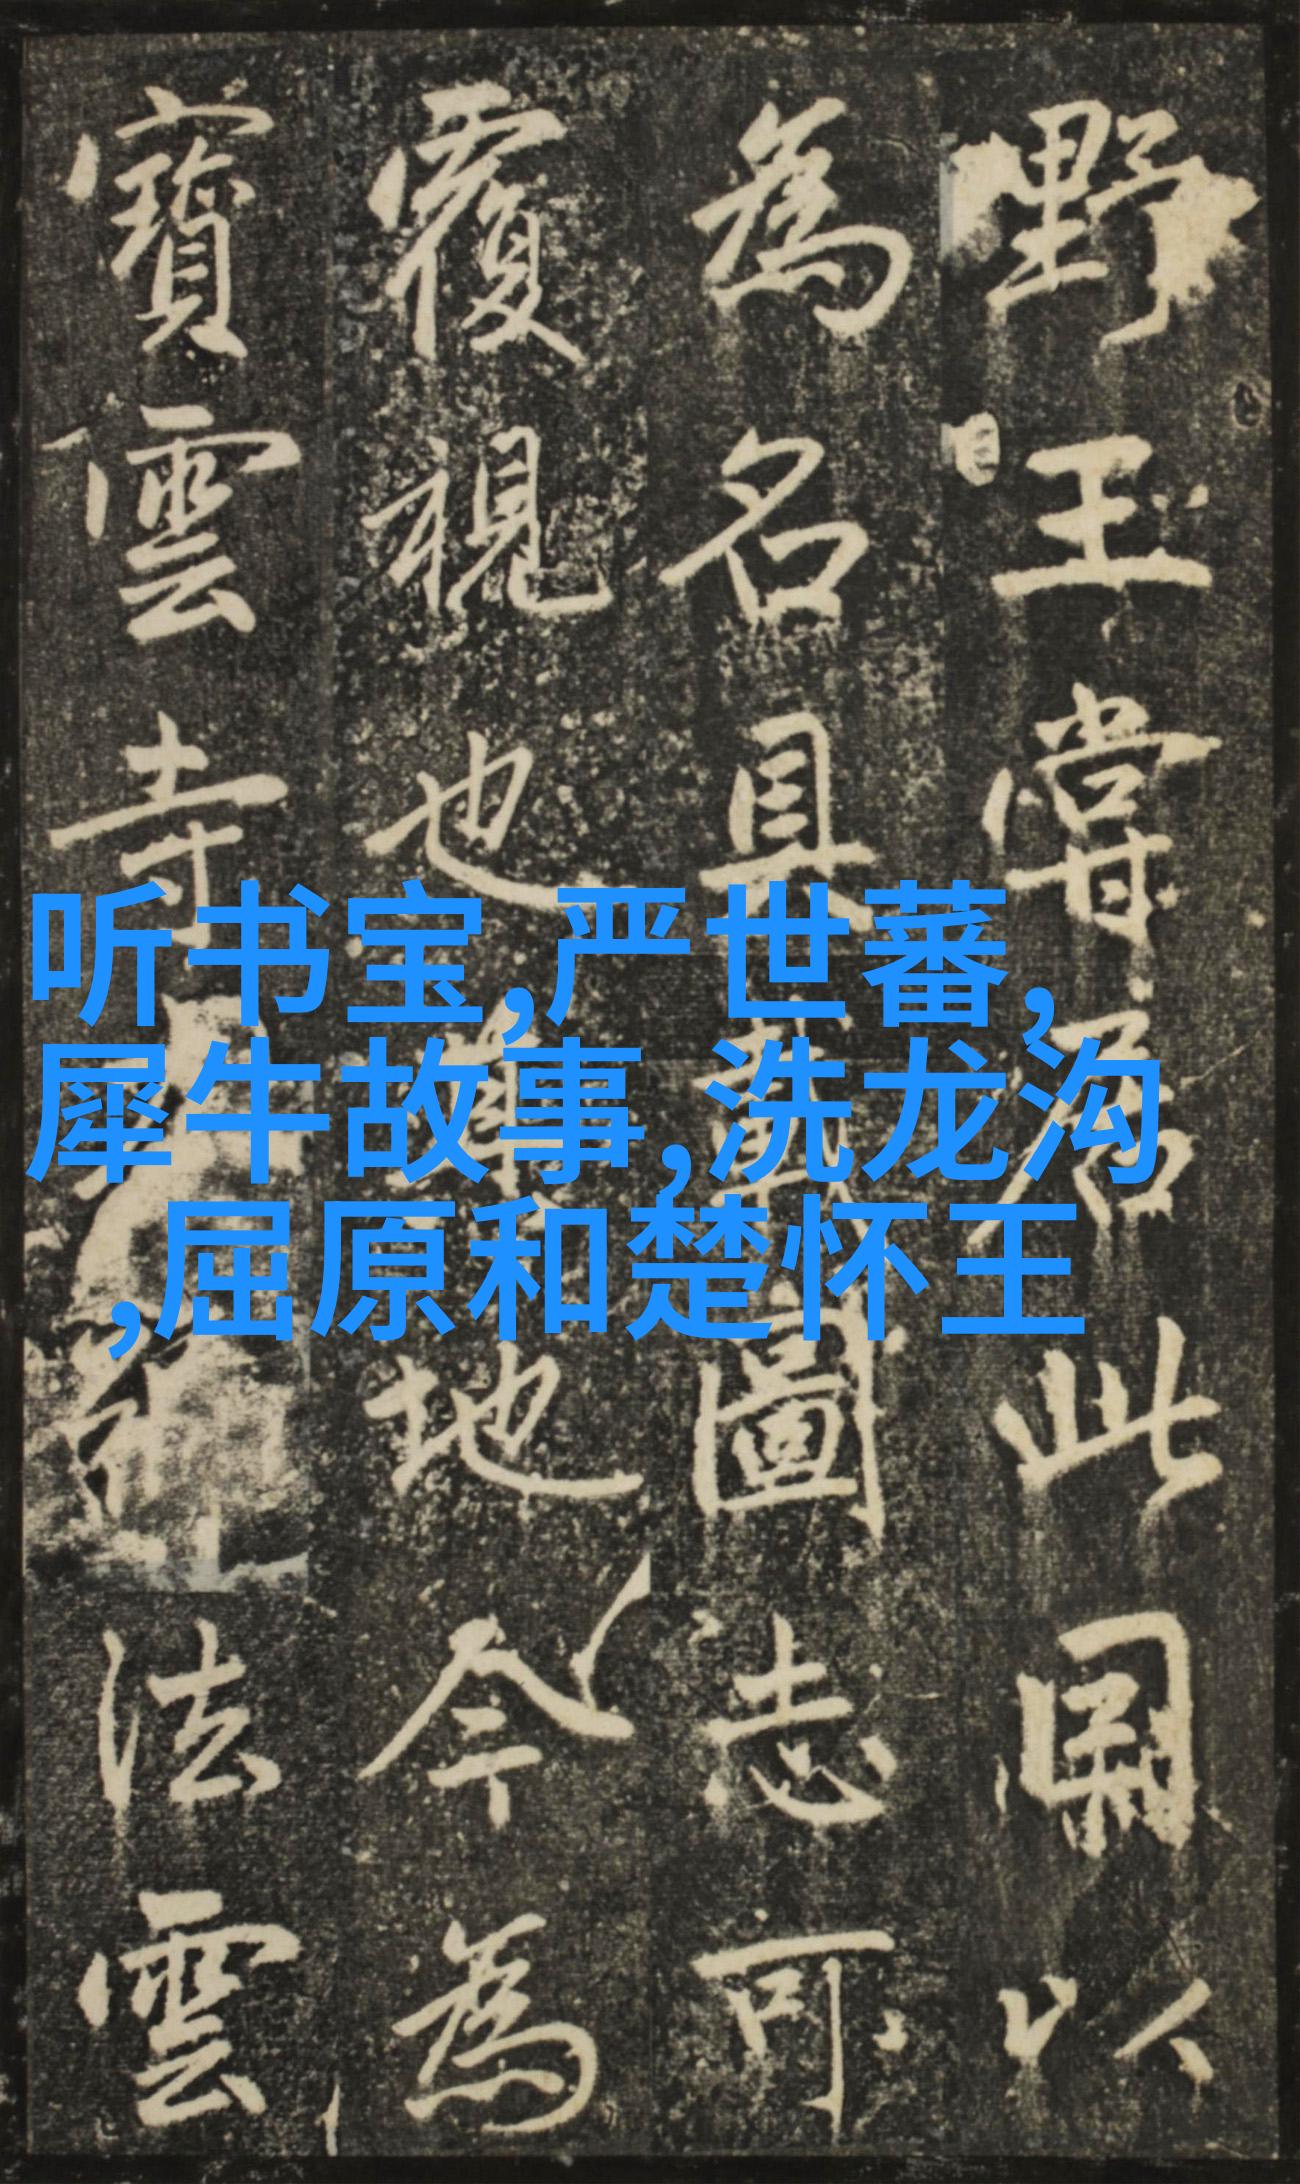 野王嘗居此以
為名具載圖志可
覆視也其地今為
寶雲寺法雲
听书宝,严世蕃,
犀牛故事,洗龙沟
,屈原和楚怀王